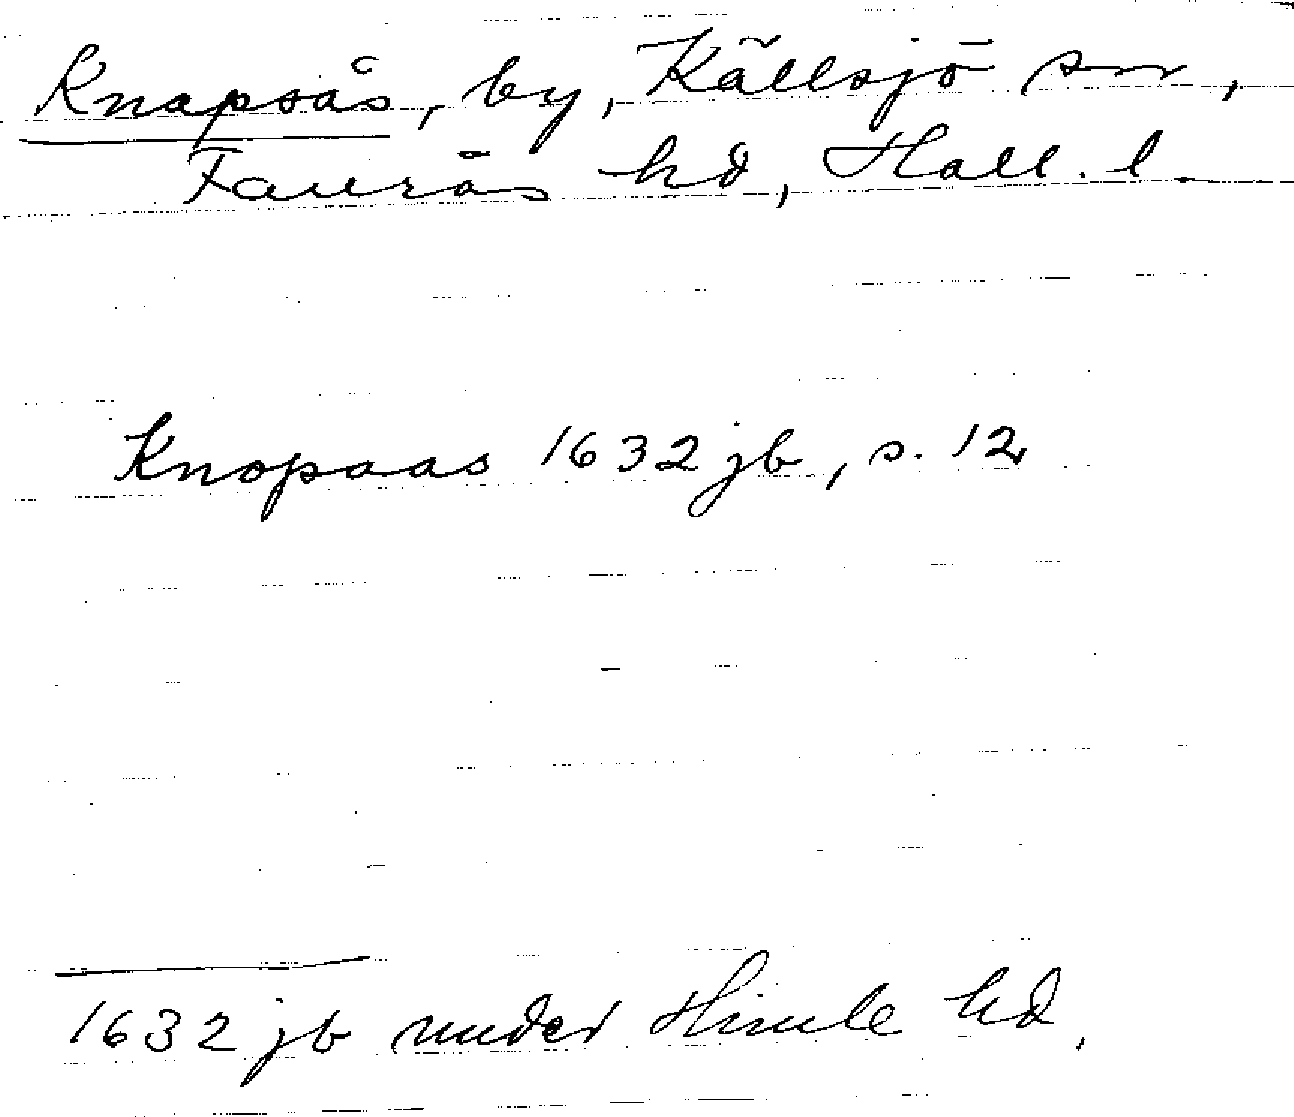 Knapsås, by, Källsjö sn,
Faurås hd, Hall. l.
Knopaas 1632 jb, s. 12
1632 jb under Himle hd.